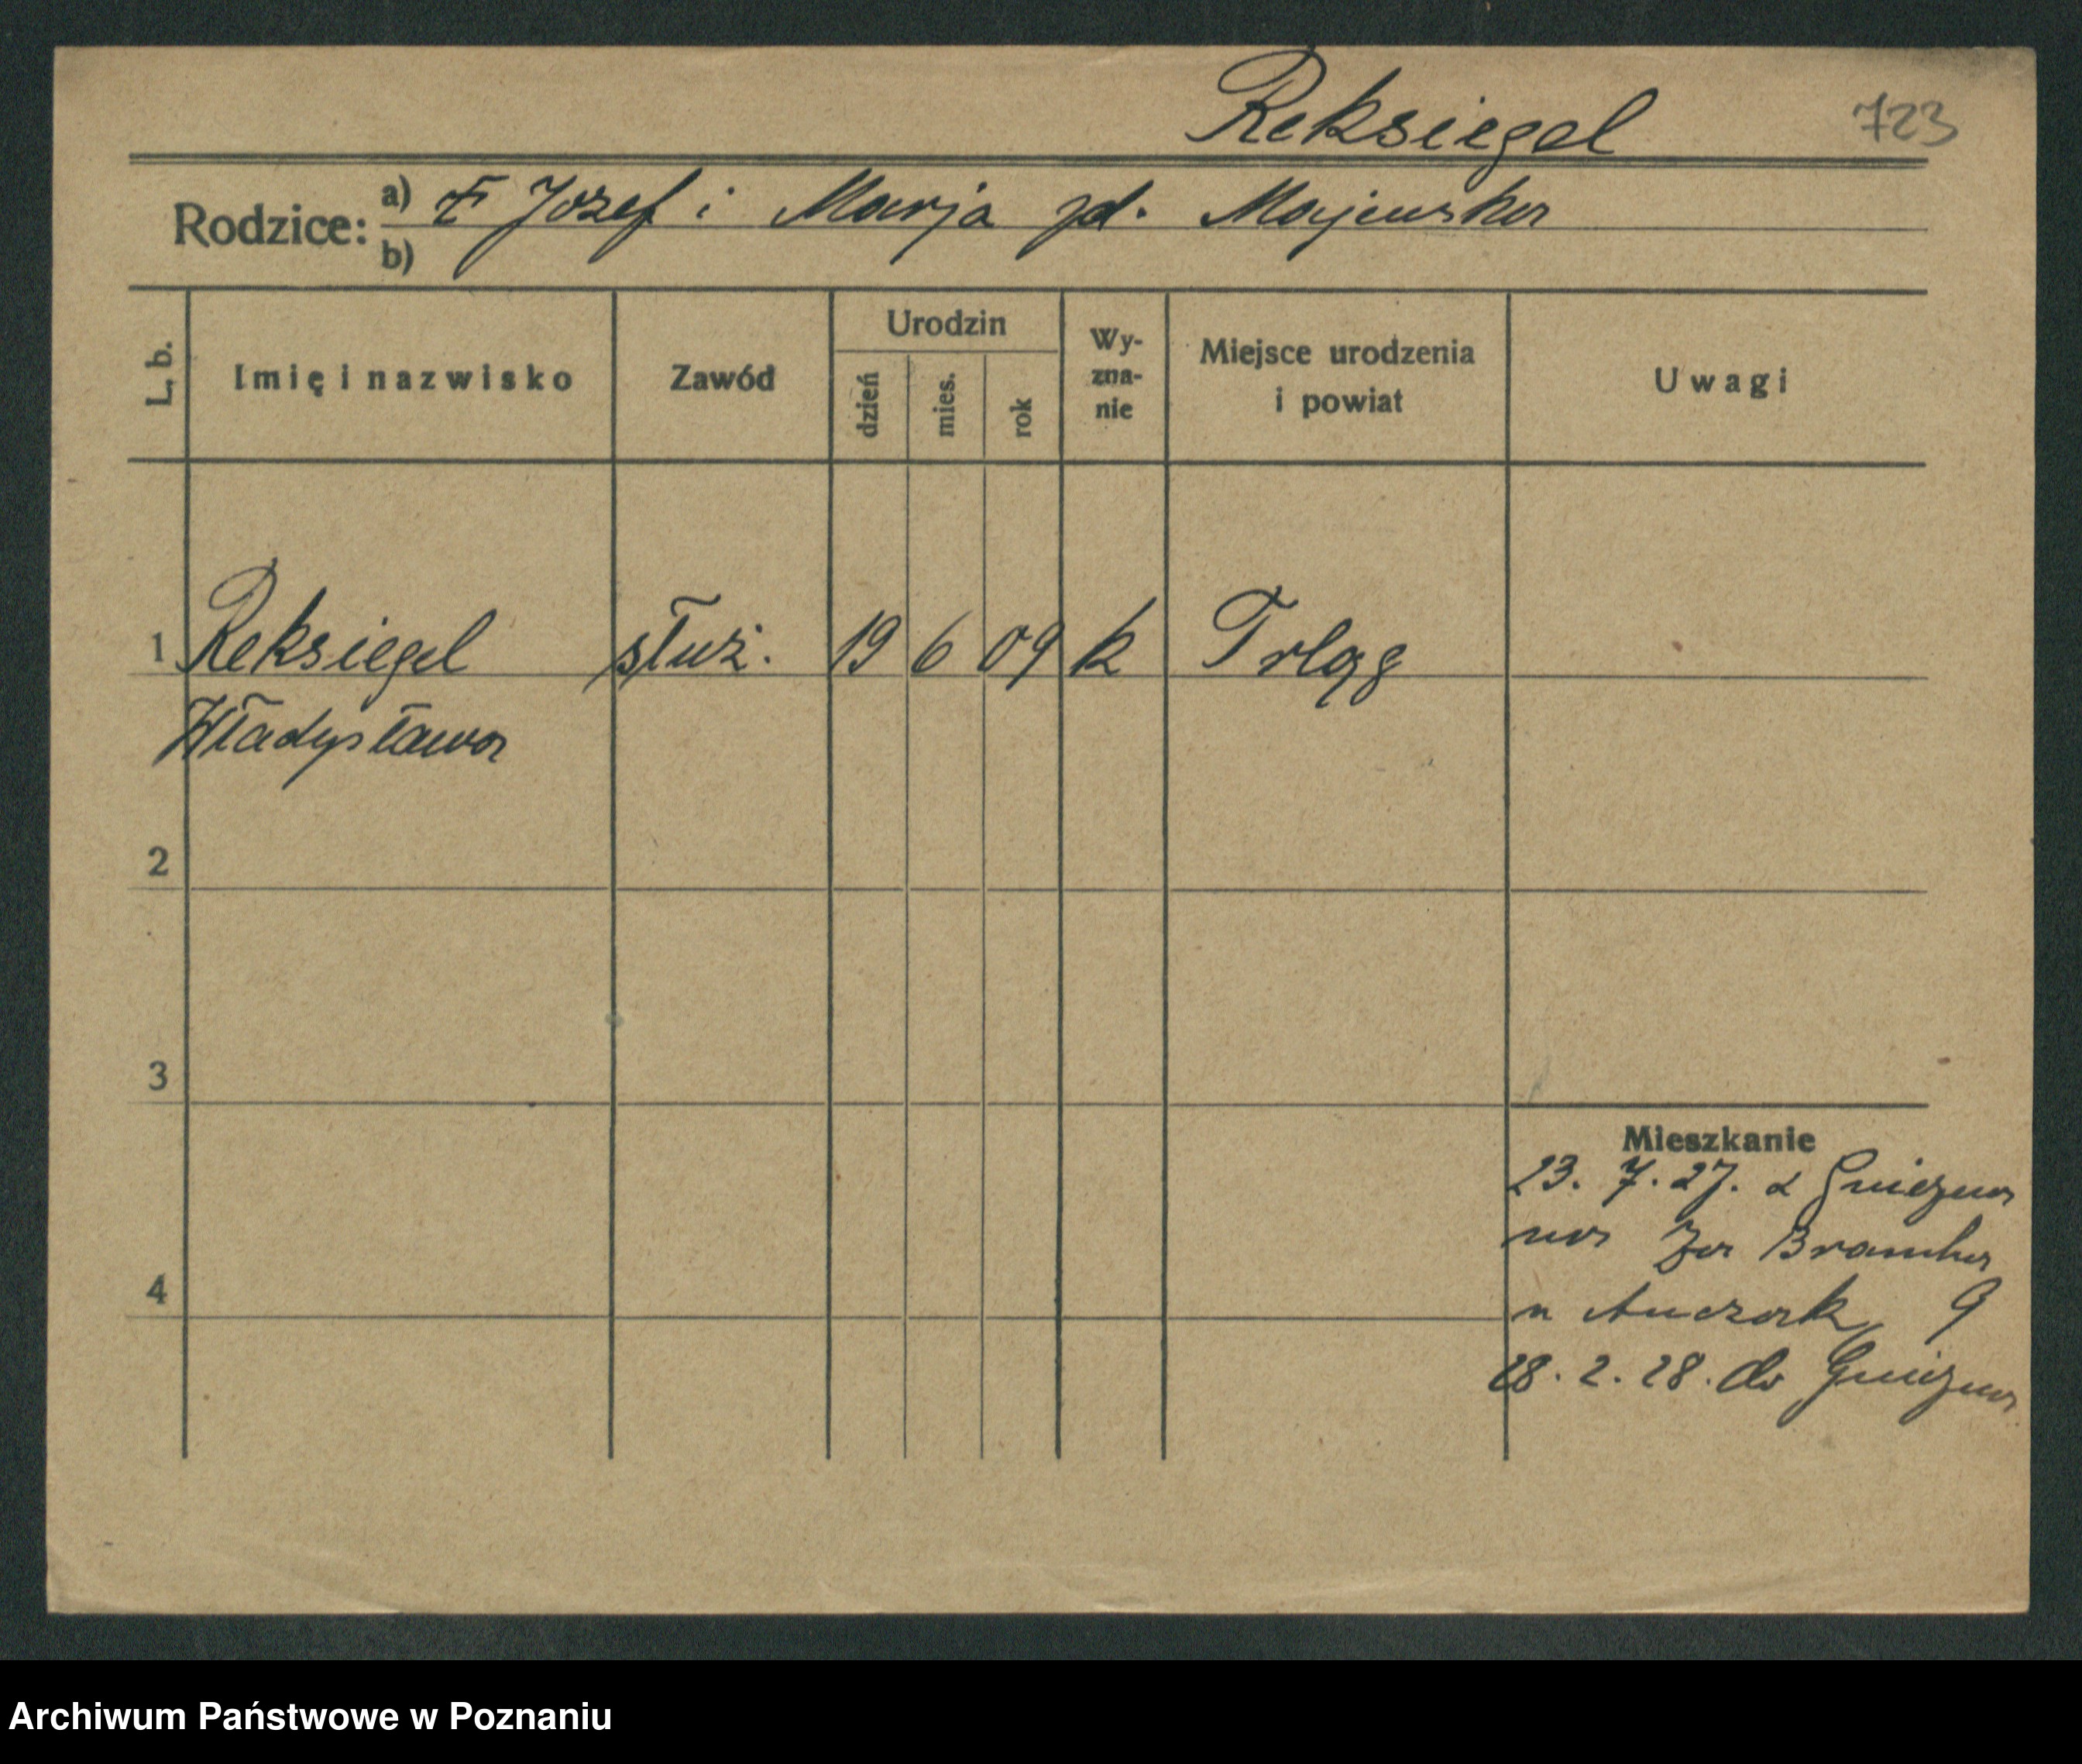 Reksiegel 723
Rodzice: a) Józef i Marja zd. Majewska
b)
L. b. Imię i nazwisko Zawód Urodzin dzień mies. rok Wy-zna-nie Miejsce urodzenia i powiat Uwagi
1 Reksiegel służ. 19 6 09 k Trląg
Władysława
2
3
Mieszkanie
23. 7. 27. z Gniezna
na Za Bramką
4
u 9
28. 2. 28. do Gniezna
Archiwum Państwowe w Poznaniu